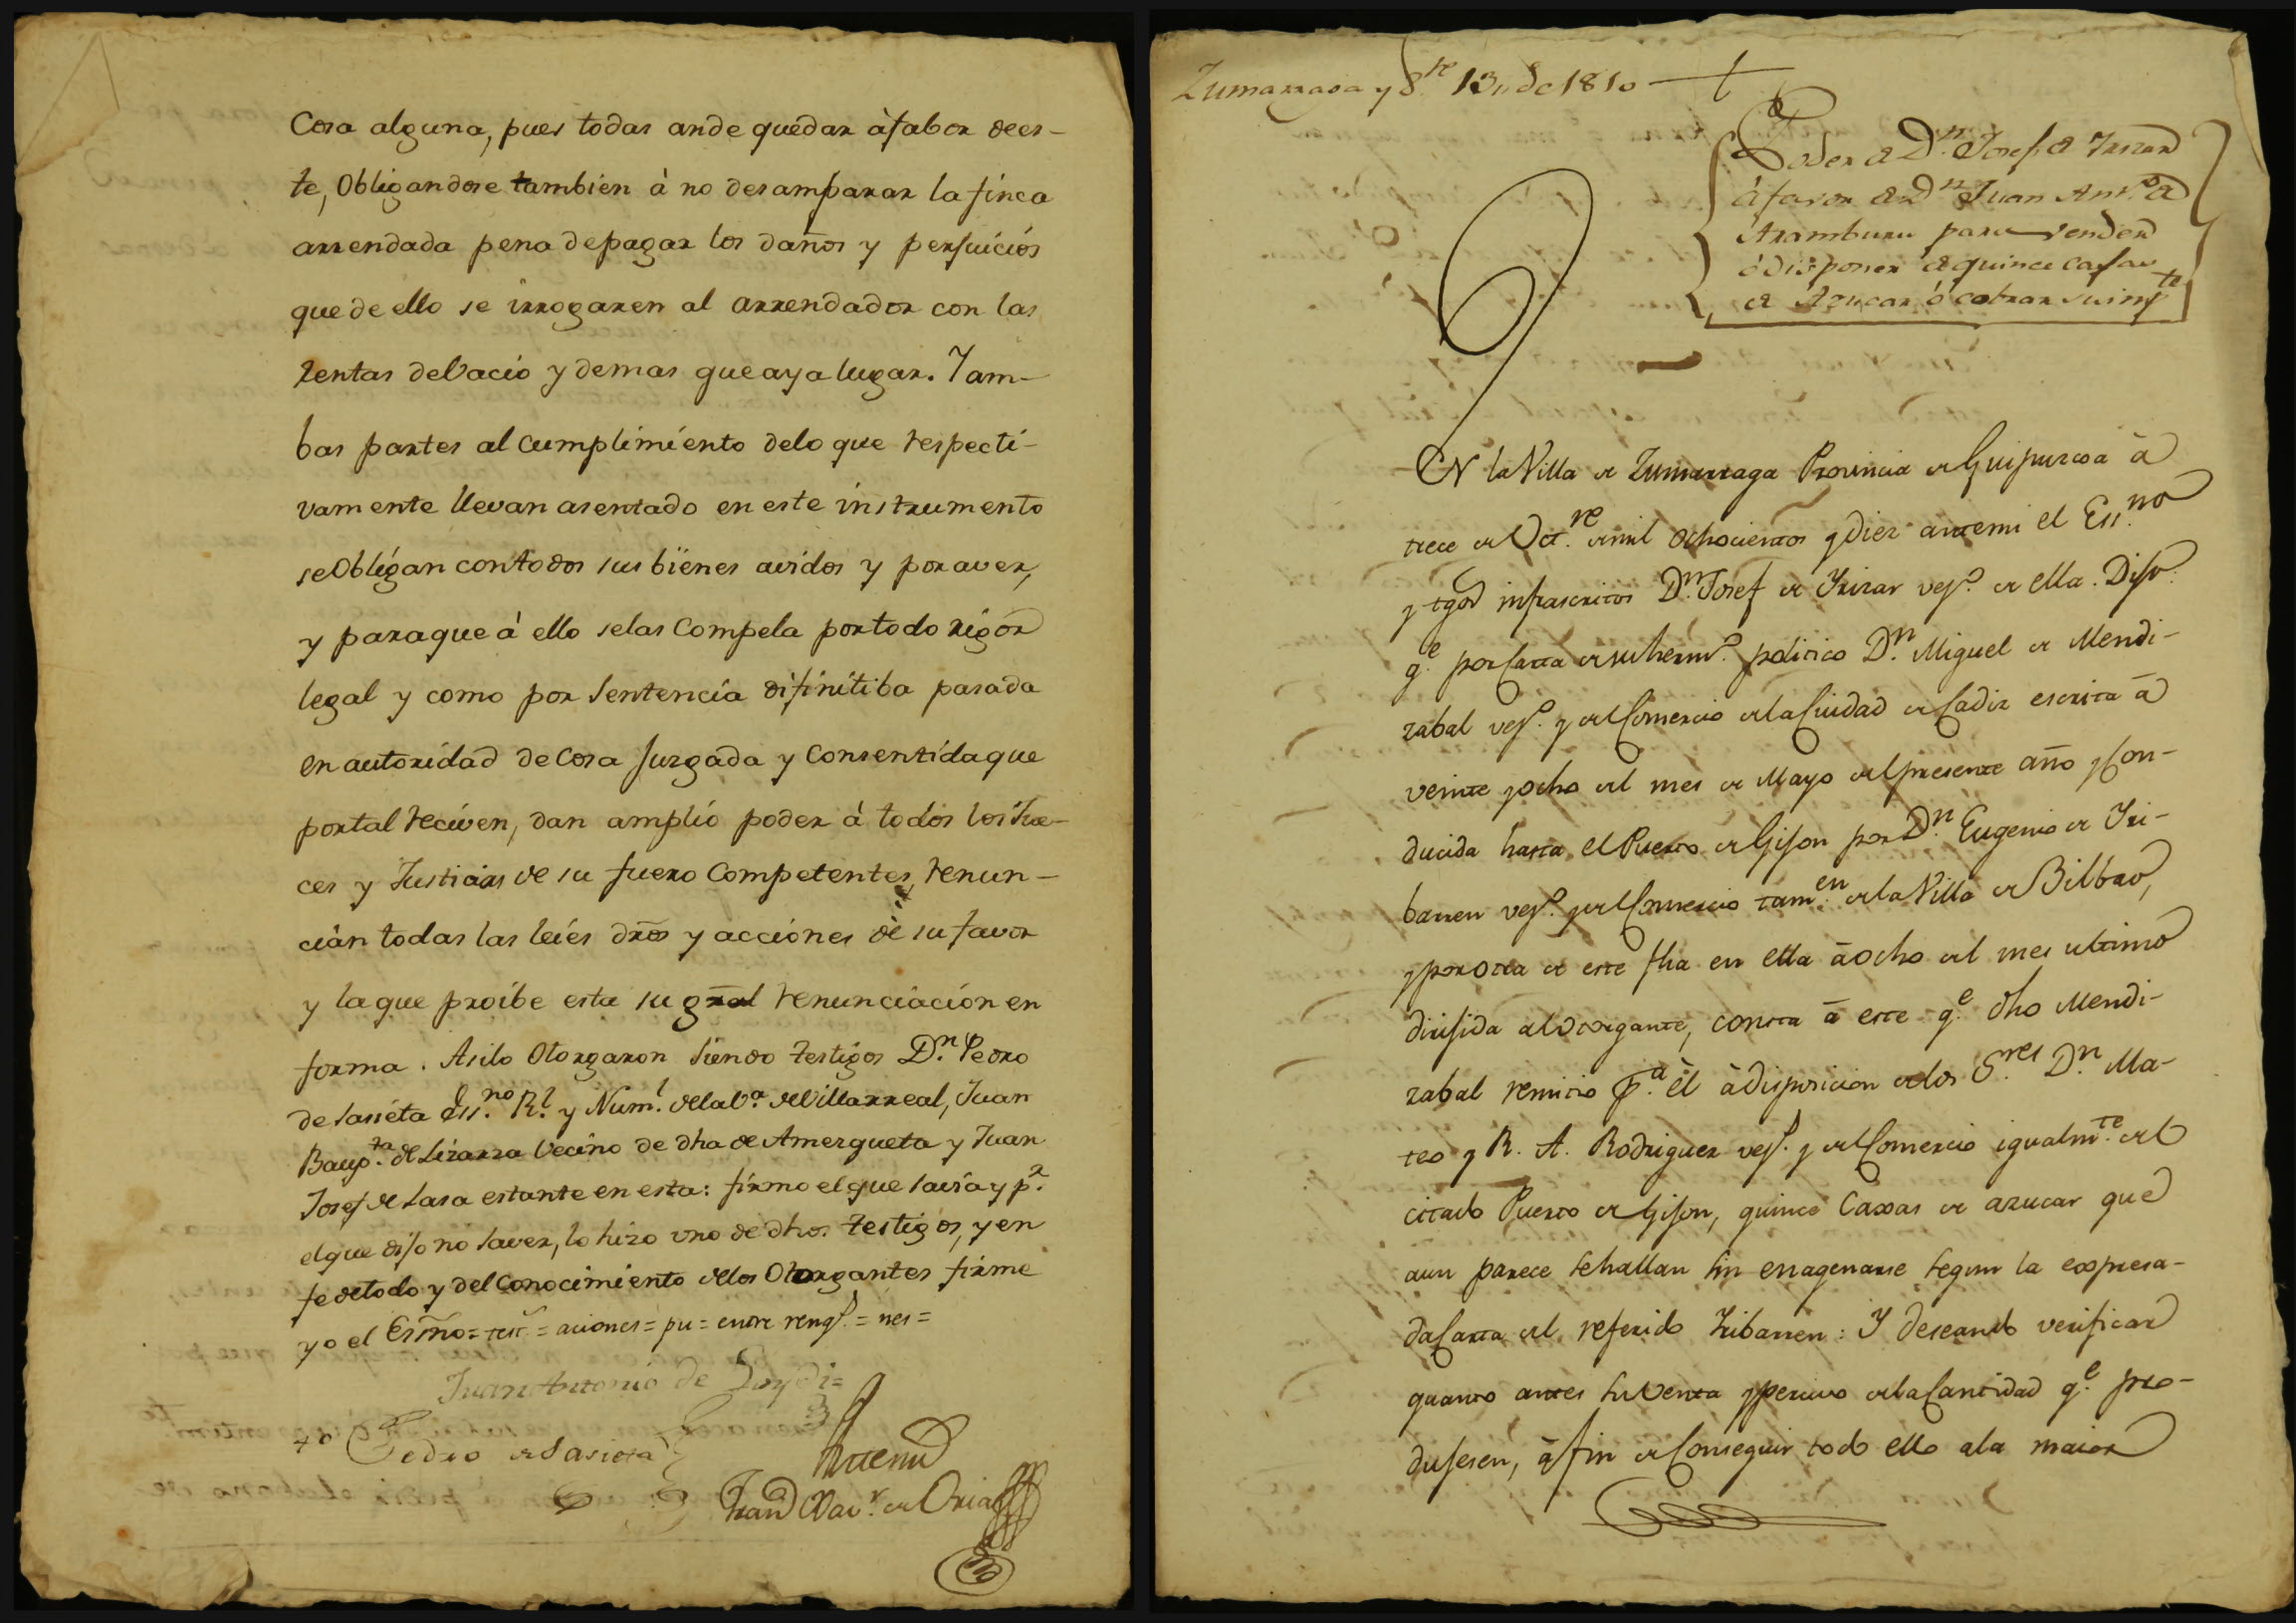 Cosa alguna, pues todas ande quedar à fabor de es-
te, Obligandose tambien à no desamparar la finca
arrendada pena de pagar los daños y perjuicios
que de ello se irrogaren al arrendador con las
rentas de Vacio y demas que aya lugar. Yam-
bas partes al cumplimiento de lo que respecti-
vamente llevan asentado en este instrumento
se Obligan con todos sus bienes avidos y por aver,
y para que à ello se las Compela por todo rigor
legal y como por Sentencia difinitiba pasada
en autoridad de Cosa Juzgada y Consentida que
por tal reciven, dan amplio poder à todos los Jue-
ces y Justicias de su fuero Competentes, renun-
cian todas las leies dros y acciones de su favor
y la que proibe esta su gral renunciacion en
forma. Asilo Otorgaron Siendo testigos Dn. Pedro
de Sasieta Ess.no Rl. y Num.l de la Va. de Villarreal, Juan
Baup.ta de Lizarza Vecino de dha de Amezqueta y Juan
Josef de Lasa estante en esta: firmo el que savia y pr.
el que dijo no saver, lo hizo uno de dhos. testigos, y en
fe de todo y del Conocimiento de los Otorgantes firme
yo el Essno = = aciones = pu = entre rengs. = nes =
Juan Antonio de
to Pedro de Sasieta
Antemi
Fran.co Xav.r de Oria
Zumarraga y 8.re 13,, de 1810
Poder de Dn. Josef de Irizar
à favor de Dn. Juan Anto. de
Aramburu para vender
ò disponer de quince cajas
de Azucar ò cobrar su impte
EN la Villa de Zumarraga Provincia de Guipuzcoa à
trece de Oct.re de mil ochocientos y diez ante mi el Ess.no
y tgos infrascritos Dn. Josef de Irizar veco. de ella. Dijo:
q.e por Carta de su hermo. politico Dn. Miguel de Mendi-
zabal veco. y del Comercio de la Ciudad de Cadiz escrita à
veinte y ocho del mes de Mayo del presente año y Con-
ducida hasta el Puerto de Gijon por Dn. Eugenio de Iri-
barren veco. y del Comercio tam.en de la Villa de Bilbao,
y por otra de este fha en ella à ocho del mes ultimo
dirijida al Otorgante, consta à este q.e dho Mendi-
zabal remitio p.a èl à disposicion de los S.res Dn. Ma-
teo y R. A. Rodriguez vecs. y del Comercio igualm.te del
citado Puerto de Gijon, quince Caxas de azucar que
aun parece se hallan sin enagenarse segun la expresa-
da Carta del referido Iribarren: Y deseando verificar
quanto antes su Venta y percivo de la Cantidad q.e pro-
dujesen, à fin de Conseguir todo ello a la maior